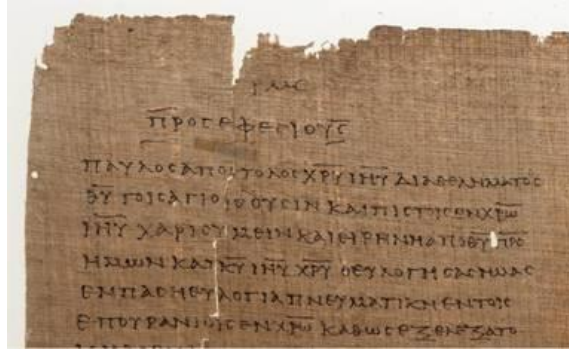 ΠΡΟϹ ΕΦΕϹΙΟΥϹ
ΠΑΥΛΟϹ ΑΠΟϹΤΟΛΟϹ Χ̅Ρ̅Υ̅ Ι̅Η̅Υ̅ ΔΙΑ ΘΕΛΗΜΑΤΟϹ
Θ̅Υ̅ ΤΟΙϹ ΑΓΙΟΙϹ ΟΥϹΙΝ ΚΑΙ ΠΙϹΤΟΙϹ ΕΝ Χ̅Ρ̅Ω̅
Ι̅Η̅Υ̅ ΧΑΡΙϹ ΥΜΕΙΝ ΚΑΙ ΕΙΡΗΝΗ ΑΠΟ Θ̅Υ̅ Π̅Ρ̅Ϲ̅
ΗΜΩΝ ΚΑΙ Κ̅Υ̅ Ι̅Η̅Υ̅ Χ̅Ρ̅Υ̅ Ο ΕΥΛΟΓΗϹΑϹ ΗΜΑϹ
ΕΝ ΠΑϹΗ ΕΥΛΟΓΙΑ ΠΝΕΥΜΑΤΙΚΗ ΕΝ ΤΟΙϹ
ΕΠΟΥΡΑΝΙΟΙϹ ΕΝ Χ̅Ρ̅Ω̅ ΚΑΘΩϹ ΕΞΕΛΕΞΑΤΟ